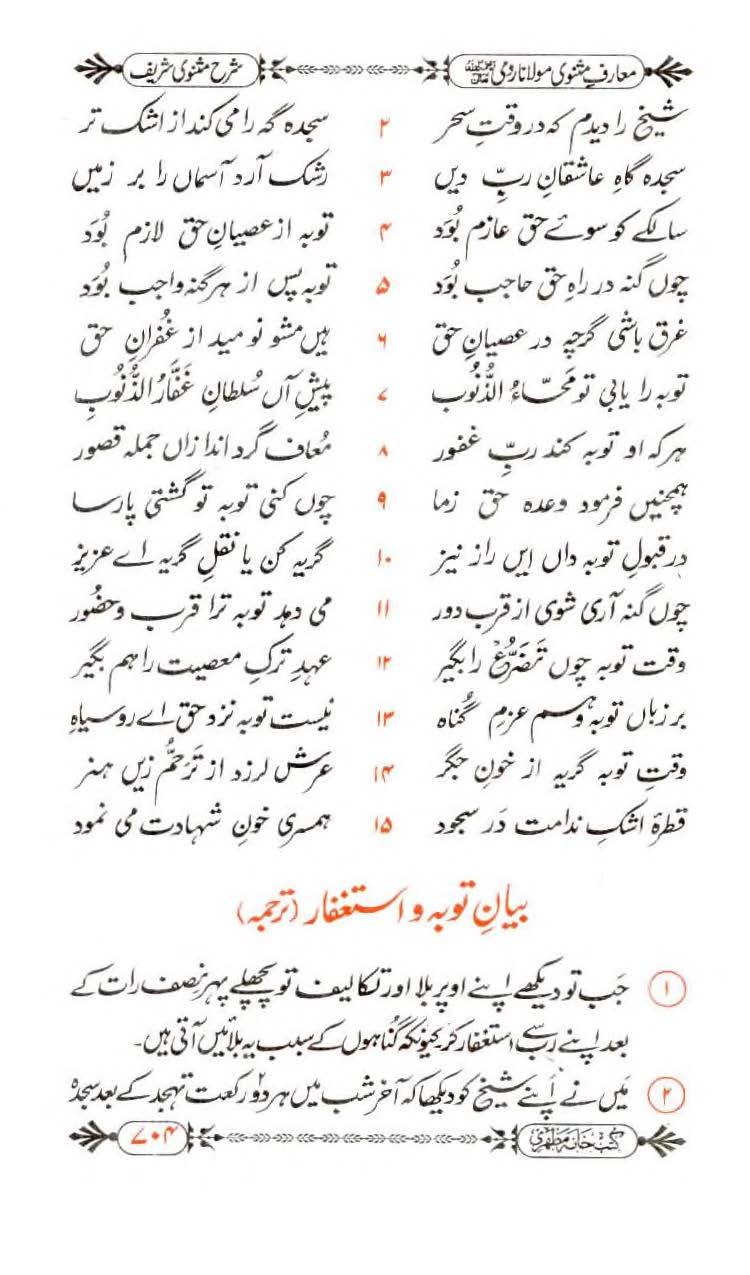 معارفِ مثنوی مولانا رومی رحمۃ اللہ علیہ شرح مثنوی شریف
شیخ را دیدم کہ در وقتِ سحر ۲ سجدہ گہ را می کند از اشک تر
سجدہ گاہِ عاشقانِ ربِّ دیں ۳ رشک آرد آسماں را بر زمیں
سالکے کو سوئے حق عازم بُوَد ۴ توبہ از عصیانِ حق لازم بُوَد
چوں گنہ در راہِ حق حاجب بُوَد ۵ توبہ پس از ہر گنہ واجب بُوَد
غرق باشی گرچہ در عصیانِ حق ۶ ہیں مشو نومید از غُفرانِ حق
توبہ را یابی تو مَحَّاءُ الذُّنُوب ۷ پیشِ آں سُلطانِ غَفَّارُ الذُّنُوبِ
ہر کہ او توبہ کند ربِّ غفور ۸ مُعاف گرداند ازاں جملہ قصور
ہمچنیں فرمود وعدہ حق زما ۹ چوں کنی توبہ تو گشتی پارسا
در قبولِ توبہ داں ایں راز نیز ۱۰ گریہ کن یا نقلِ گریہ اے عزیز
چوں گنہ آری شوی از قرب دور ۱۱ می دہد توبہ ترا قرب و حضُور
وقت توبہ چوں تَضَرُّعْ را بگیر ۱۲ عہدِ ترکِ معصیت را ہم بگیر
بر زباں توبہ و ہم عزمِ گُناہ ۱۳ نیست توبہ نزد حق اے روسیاہِ
وقتِ توبہ گریہ از خونِ جگر ۱۴ عرش لرزد از تَرَحُّم زیں ہنر
قطرۂ اشکِ ندامت دَر سجود ۱۵ ہمسری خونِ شہادت می نمود
بیانِ توبہ و استغفار (ترجمہ)
۱ جَب تو دیکھے اپنے اوپر بلا اور تکالیف تو پچھلے پہر نصف رات کے
بعد اپنے رب سے استغفار کر کیونکہ گُناہوں کے سبب یہ بلائیں آتی ہیں۔
۲ مَیں نے اَپنے شیخ کو دیکھا کہ آخر شب میں ہر دو رکعت تہجد کے بعد سجدہ
کتب خانہ مظہری ۷۰۴